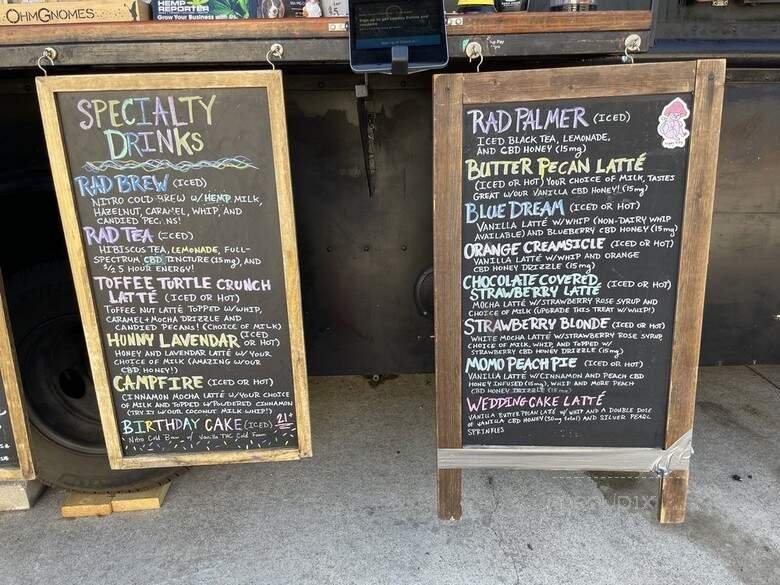 OHMGNOMES
HEMP
REPORTER
Grow Your Business with
SPECIALTY
DRINKS
RAD BREW (ICED)
NITRO COLD BREW W/ HEMP MILK,
HAZELNUT, CARAMEL, WHIP, AND
CANDIED PEC NS!
RAD TEA (ICED)
HIBISCUS TEA, LEMONADE, FULL-
SPECTRUM CBD TINCTURE (15mg), AND
1/2 5 HOUR ENERGY!
TOFFEE TURTLE CRUNCH
LATTÉ (ICED OR HOT)
TOFFEE NUT LATTÉ TOPPED W/WHIP,
CARAMEL + MOCHA DRIZZLE AND
CANDIED PECANS! (CHOICE OF MILK)
HUNNY LAVENDAR (ICED OR HOT)
HONEY AND LAVENDAR LATTÉ W/ YOUR
CHOICE OF MILK (AMAZING W/OUR
CBD HONEY!)
CAMPFIRE (ICED OR HOT)
CINNAMON MOCHA LATTÉ W/YOUR CHOICE
OF MILK AND TOPPED W/POWDERED CINNAMON
(TRY IT W/OUR COCONUT MILK WHIP!)
BIRTHDAY CAKE (ICED) 21+
Nitro Cold Brew w/ Vanilla THC Cold Foam
RAD PALMER (ICED)
ICED BLACK TEA, LEMONADE,
AND CBD HONEY (15mg)
BUTTER PECAN LATTÉ
(ICED OR HOT) YOUR CHOICE OF MILK, TASTES
GREAT W/OUR VANILLA CBD HONEY! (15mg)
BLUE DREAM (ICED OR HOT)
VANILLA LATTÉ W/WHIP (NON-DAIRY WHIP
AVAILABLE) AND BLUEBERRY CBD HONEY (15mg)
ORANGE CREAMSICLE (ICED OR HOT)
VANILLA LATTÉ W/WHIP AND ORANGE
CBD HONEY DRIZZLE (15mg)
CHOCOLATE COVERED
STRAWBERRY LATTÉ (ICED OR HOT)
MOCHA LATTÉ W/STRAWBERRY ROSE SYRUP AND
CHOICE OF MILK (UPGRADE THIS TREAT W/WHIP!)
STRAWBERRY BLONDE (ICED OR HOT)
WHITE MOCHA LATTÉ W/STRAWBERRY ROSE SYRUP,
CHOICE OF MILK, WHIP, AND TOPPED W/
STRAWBERRY CBD HONEY DRIZZLE (15mg)
MOMO PEACH PIE (ICED OR HOT)
VANILLA LATTÉ W/CINNAMON AND PEACH CBD
HONEY INFUSED (15mg), WHIP AND MORE PEACH
CBD HONEY DRIZZLE (15mg)
WEDDING CAKE LATTÉ
VANILLA BUTTER PECAN LATTÉ W/ WHIP AND A DOUBLE DOSE
OF VANILLA CBD HONEY (30mg total) AND SILVER PEARL
SPRINKLES